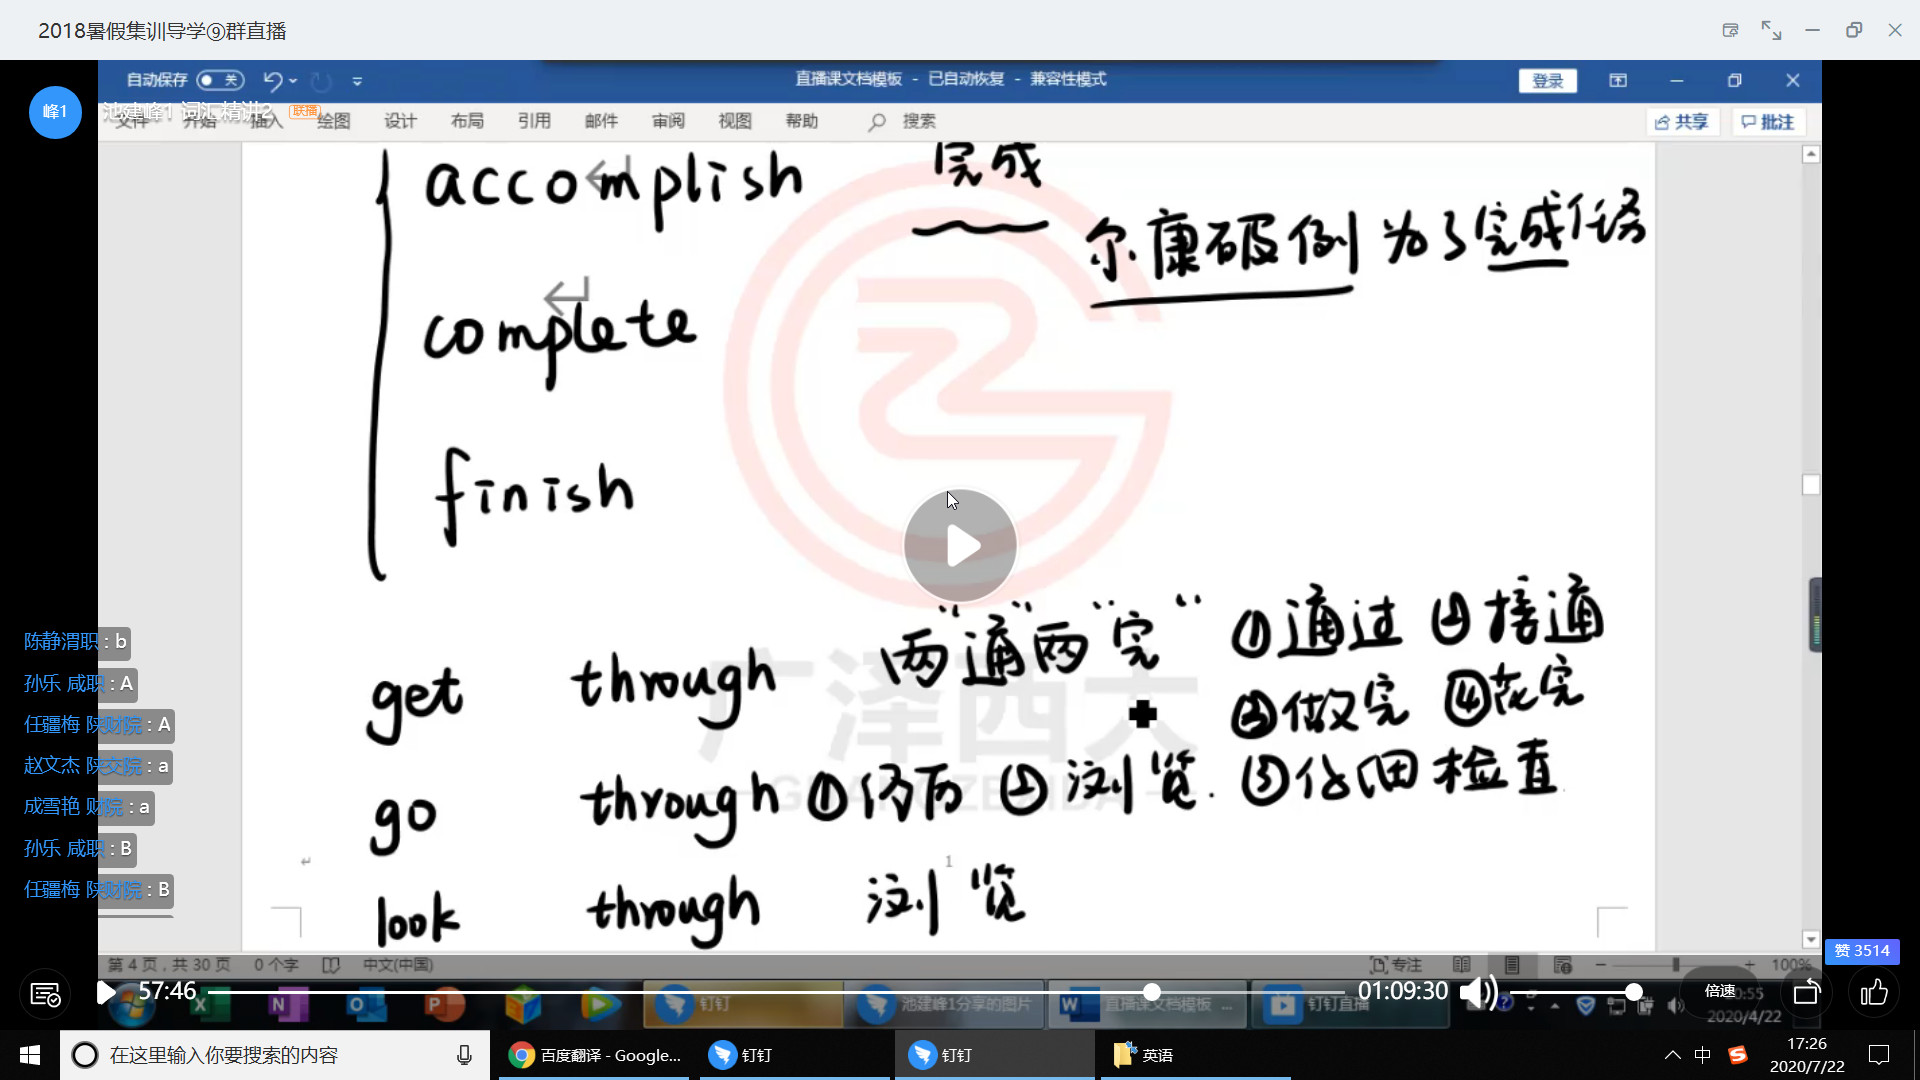 2018暑假集训导学⑨群直播
自动保存 关
直播课文档模板 - 已自动恢复 - 兼容性模式
登录
峰1
池建峰1 词汇精讲2 联播
文件 开始 插入 绘图 设计 布局 引用 邮件 审阅 视图 帮助 搜索
共享 批注
accomplish 完成
尔康破例为了完成任务
complete
finish
get through 两"通"两"完" ①通过 ②接通
③做完 ④花完
广泽西大
GUANGZEXIDA
go through ① ②浏览. ③仔细检查
1
look through 浏览
陈静渭职 : b
孙乐 咸职 : A
任疆梅 陕财院 : A
赵文杰 陕交院 : a
成雪艳 财院 : a
孙乐 咸职 : B
任疆梅 陕财院 : B
赞 3514
第 4 页，共 30 页 0 个字 中文(中国) 专注 100%
57:46 01:09:30 倍速
钉钉 池建峰1分享的图片 直播课文档模板 ... 钉钉直播
2020/4/22
在这里输入你要搜索的内容 百度翻译 - Google... 钉钉 钉钉 英语 中 17:26
2020/7/22